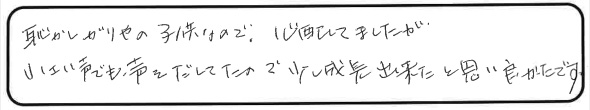 恥かしがりやの子供なので、心配してましたが
小さい声でも声をだしてたので少し成長出来たと思い良かたです